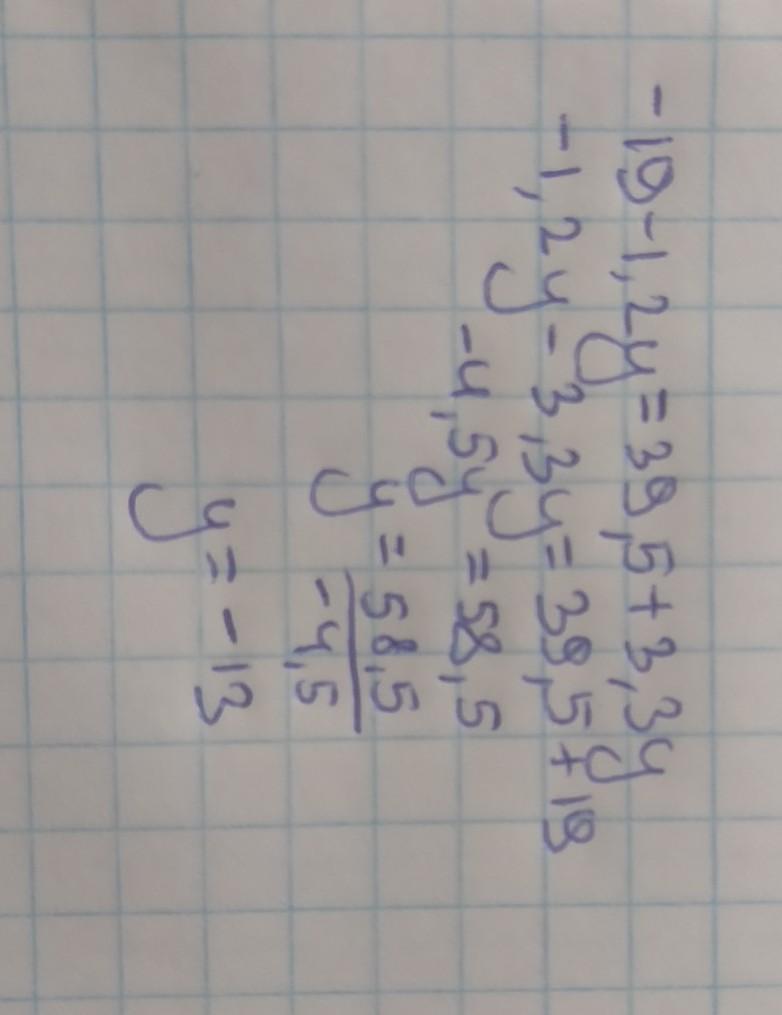 -19-1,2y=39,5+3,3y
-1,2y-3,3y=39,5+19
-4,5y=58,5
y=58,5
-4,5
y=-13